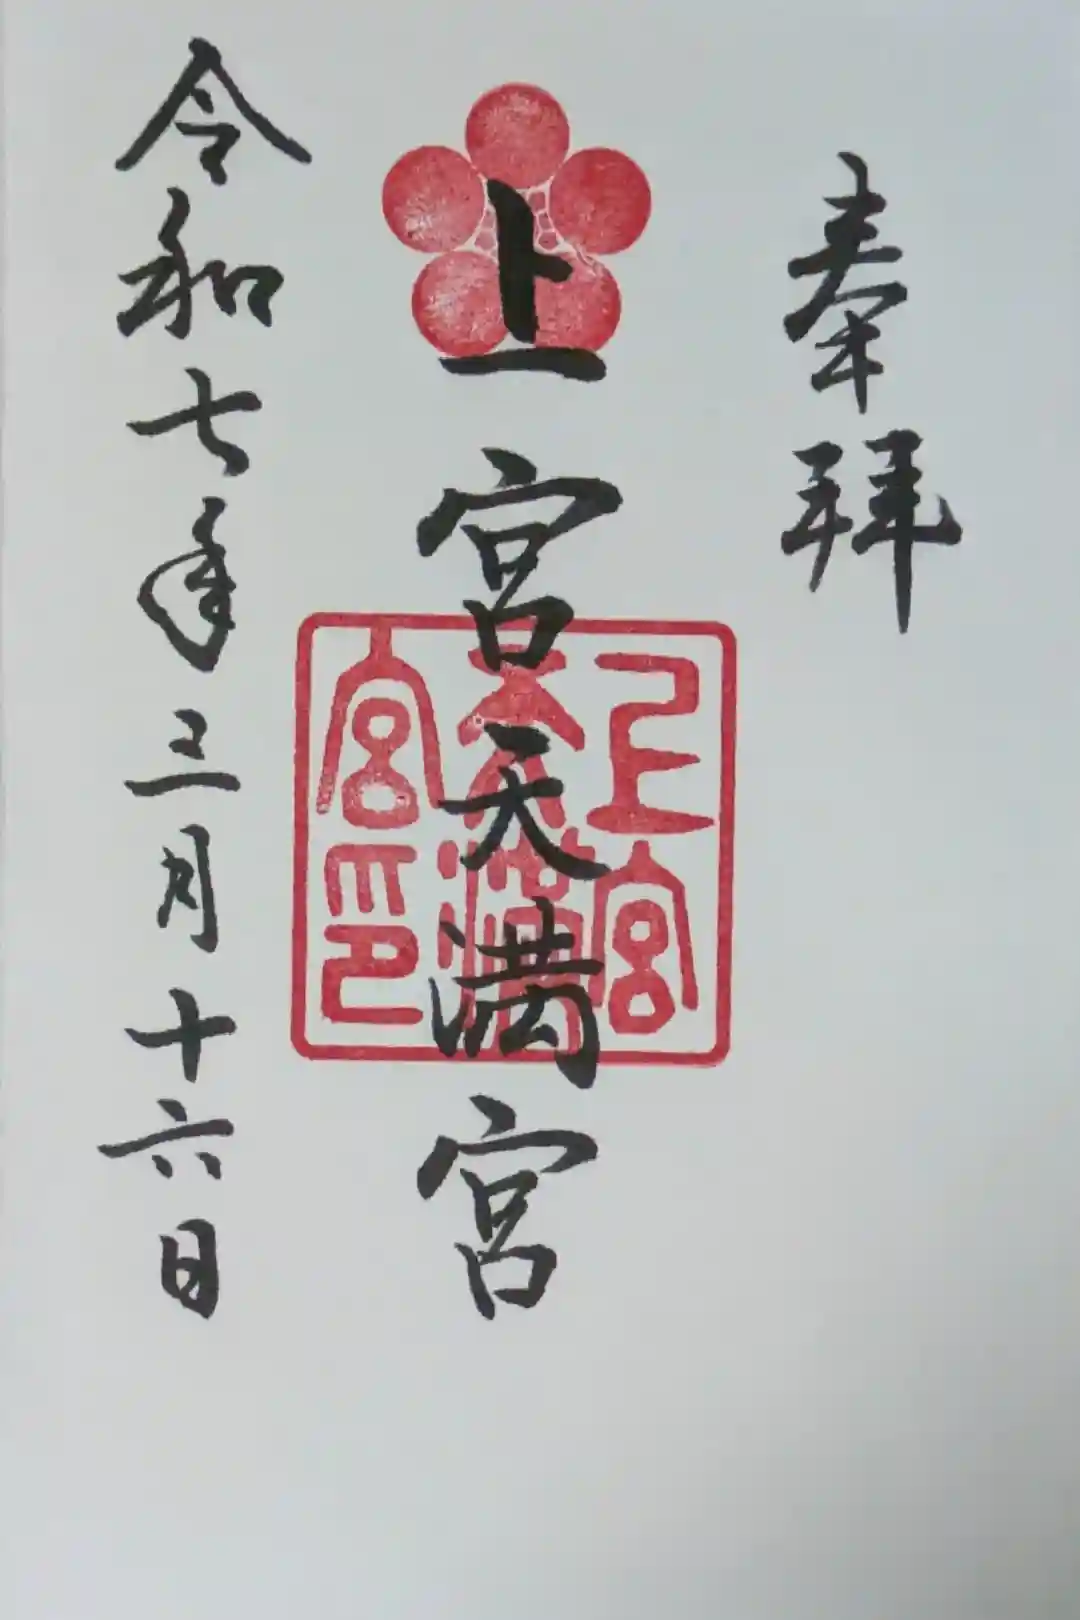 奉拝
上宮天満宮
上宮
天満
宮印
令和七年三月十六日